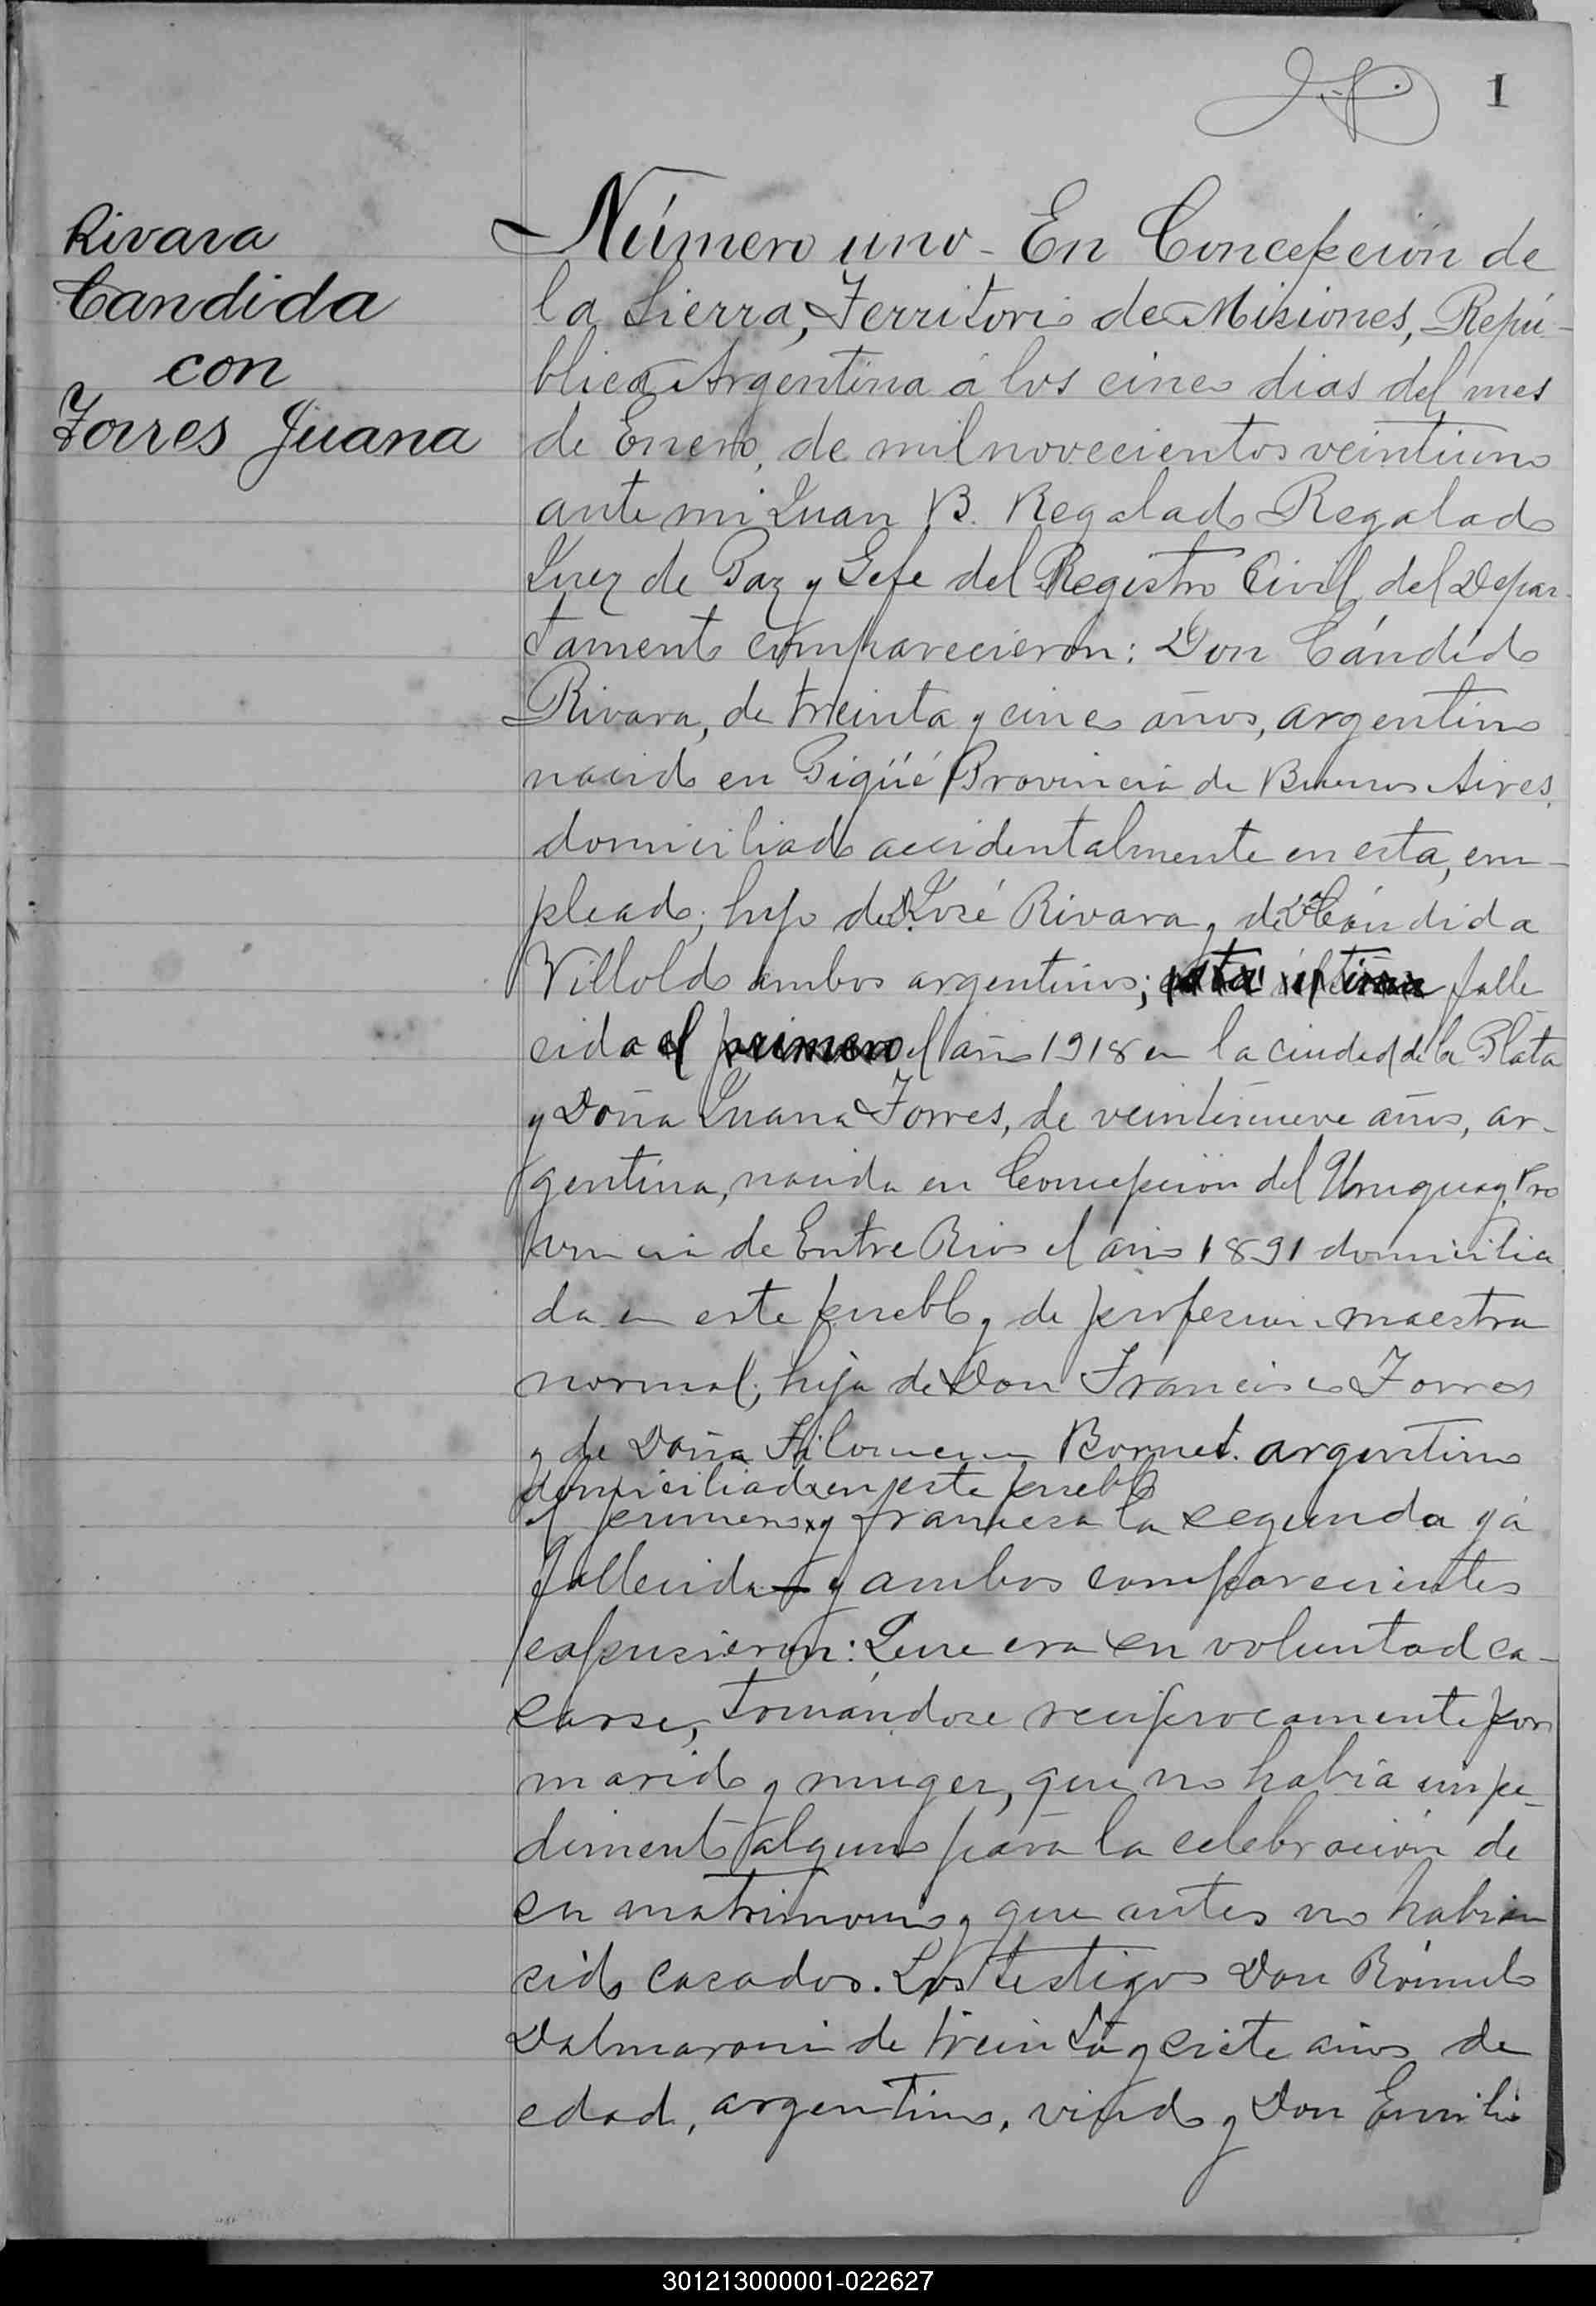 1
Rivara
Candida
con
Torres Juana
Número uno - En Concepción de
la Sierra, Territorio de Misiones, Repú-
blica Argentina á los cinco dias del mes
de Enero, de mil novecientos veintiuno
ante mi Juan B. Regalado Regalado
Juez de Paz y Gefe del Registro Civil del Depar-
tamento comparecieron: Don Cándido
Rivara, de treinta y cinco años, argentino
nacido en Pigüé Provincia de Buenos Aires,
domiciliado accidentalmente en esta, em-
pleado; hijo de D. José Rivara y de Da. Cándida
Villoldo ambos argentinos; esta última falle
cida el primero el año 1918 en la ciudad de la Plata
y Doña Juana Torres, de veintinueve años, ar-
gentina, nacida en Concepción del Uruguay, Pro
vincia de Entre Rios el año 1891 domicilia
da en este pueblo y de profesion maestra
normal, hija de Don Francisco Torres
y de Doña Filomena Bornet. argentino
domiciliado en este pueblo
el primero x y francesa la segunda yá
fallecida y ambos comparecientes
expusieron: Que era su voluntad ca-
sarse, tomándose reciprocamente por
marido y muger, que no habia impe-
dimento alguno para la celebración de
su matrimonio y que antes no habian
sido casados. Los testigos Don Rómulo
Dalmaroni de treinta y siete años de
edad, argentino, viudo y Don Emilio
301213000001-022627